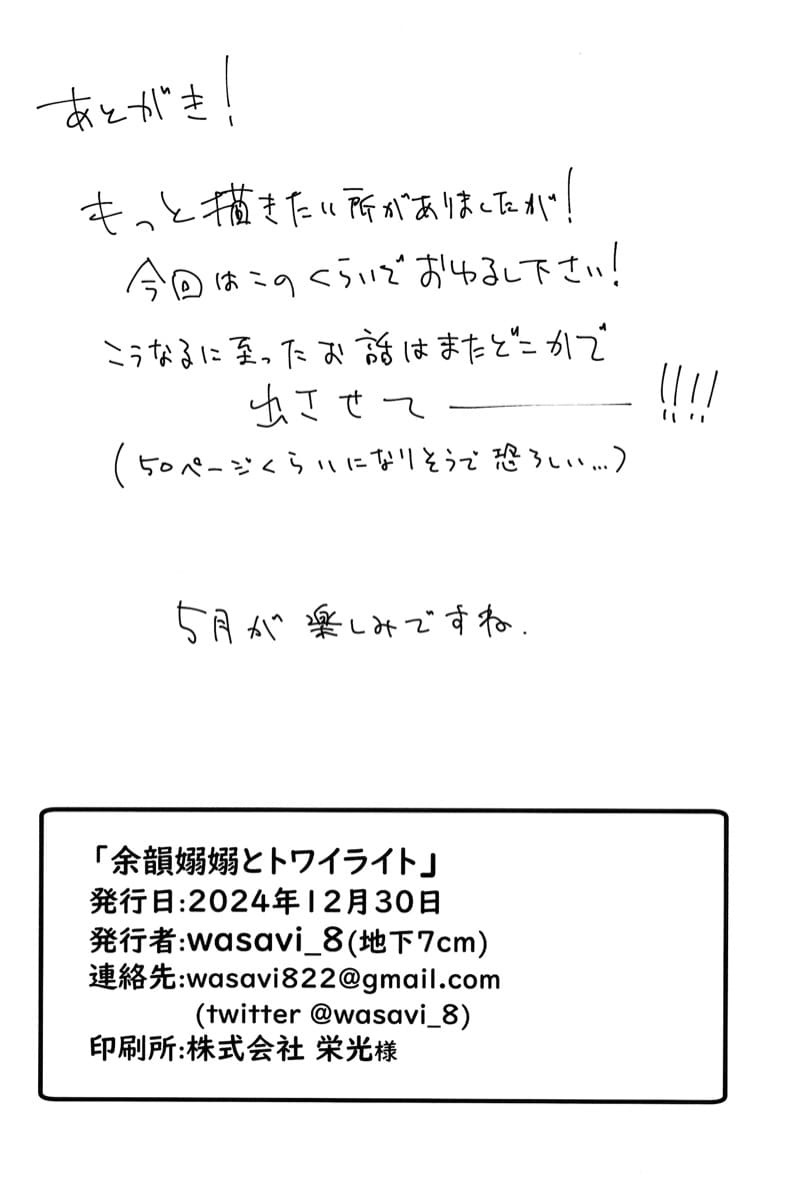 あとがき!
もっと描きたい所がありましたが!
今回はこのくらいでおゆるし下さい!
こうなるに至ったお話はまたどこかで
出させて――――!!!!
(50ページくらいになりそうで恐ろしい…)
5月が楽しみですね.
「余韻嫋嫋とトワイライト」
発行日:2024年12月30日
発行者:wasavi_8(地下7cm)
連絡先:wasavi822@gmail.com
(twitter @wasavi_8)
印刷所:株式会社 栄光様